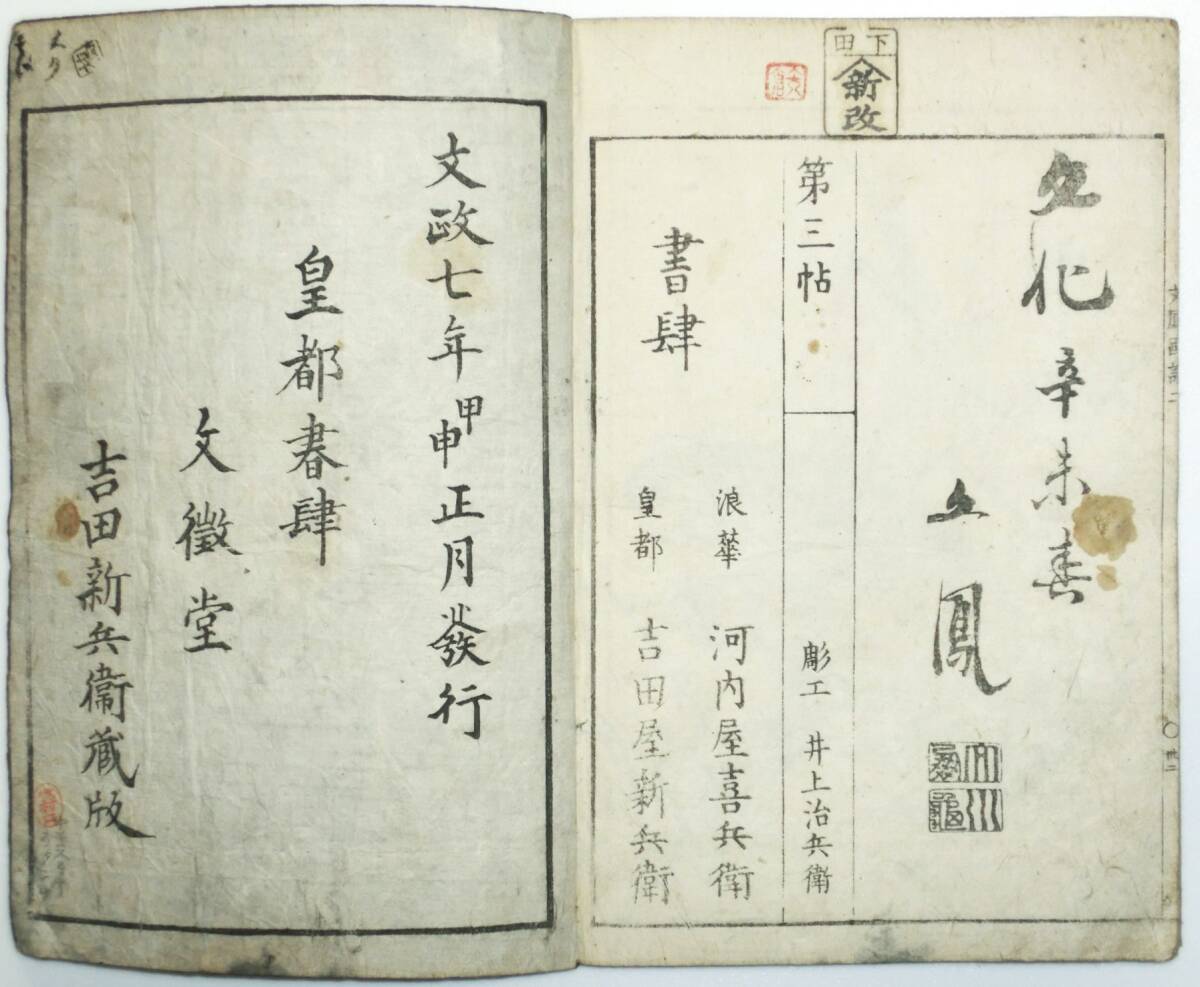 下田
新改
文化辛未春
文鳳
第三帖
彫工 井上治兵衛
書肆
浪華 河内屋喜兵衛
皇都 吉田屋新兵衛
文政七年甲申正月發行
皇都書肆
文徴堂
吉田新兵衛蔵版